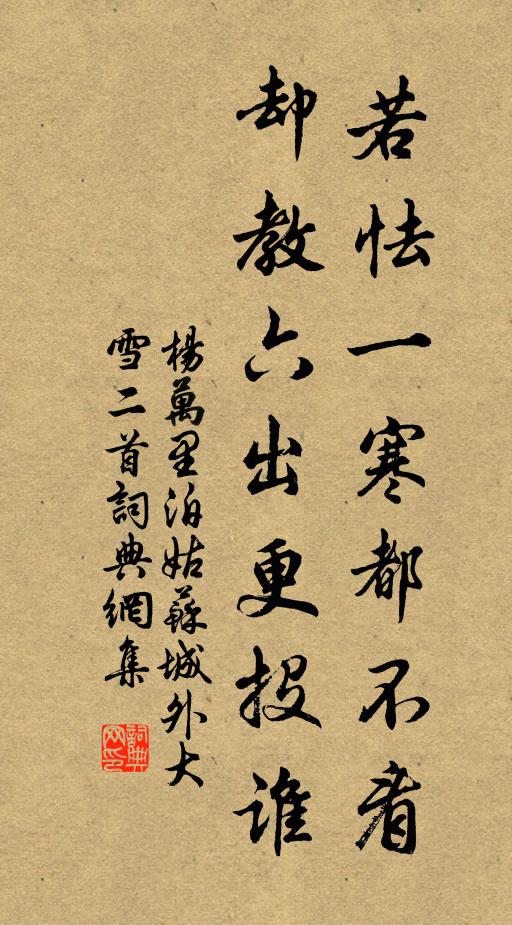 若怯一寒都不看
却教六出更投誰
楊萬里泊姑蘇城外大
雪二首詞典網集
詞典
网印